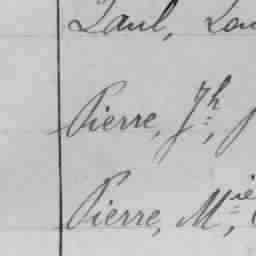 Paul, Lou
Pierre, Jh,
Pierre, Mie,